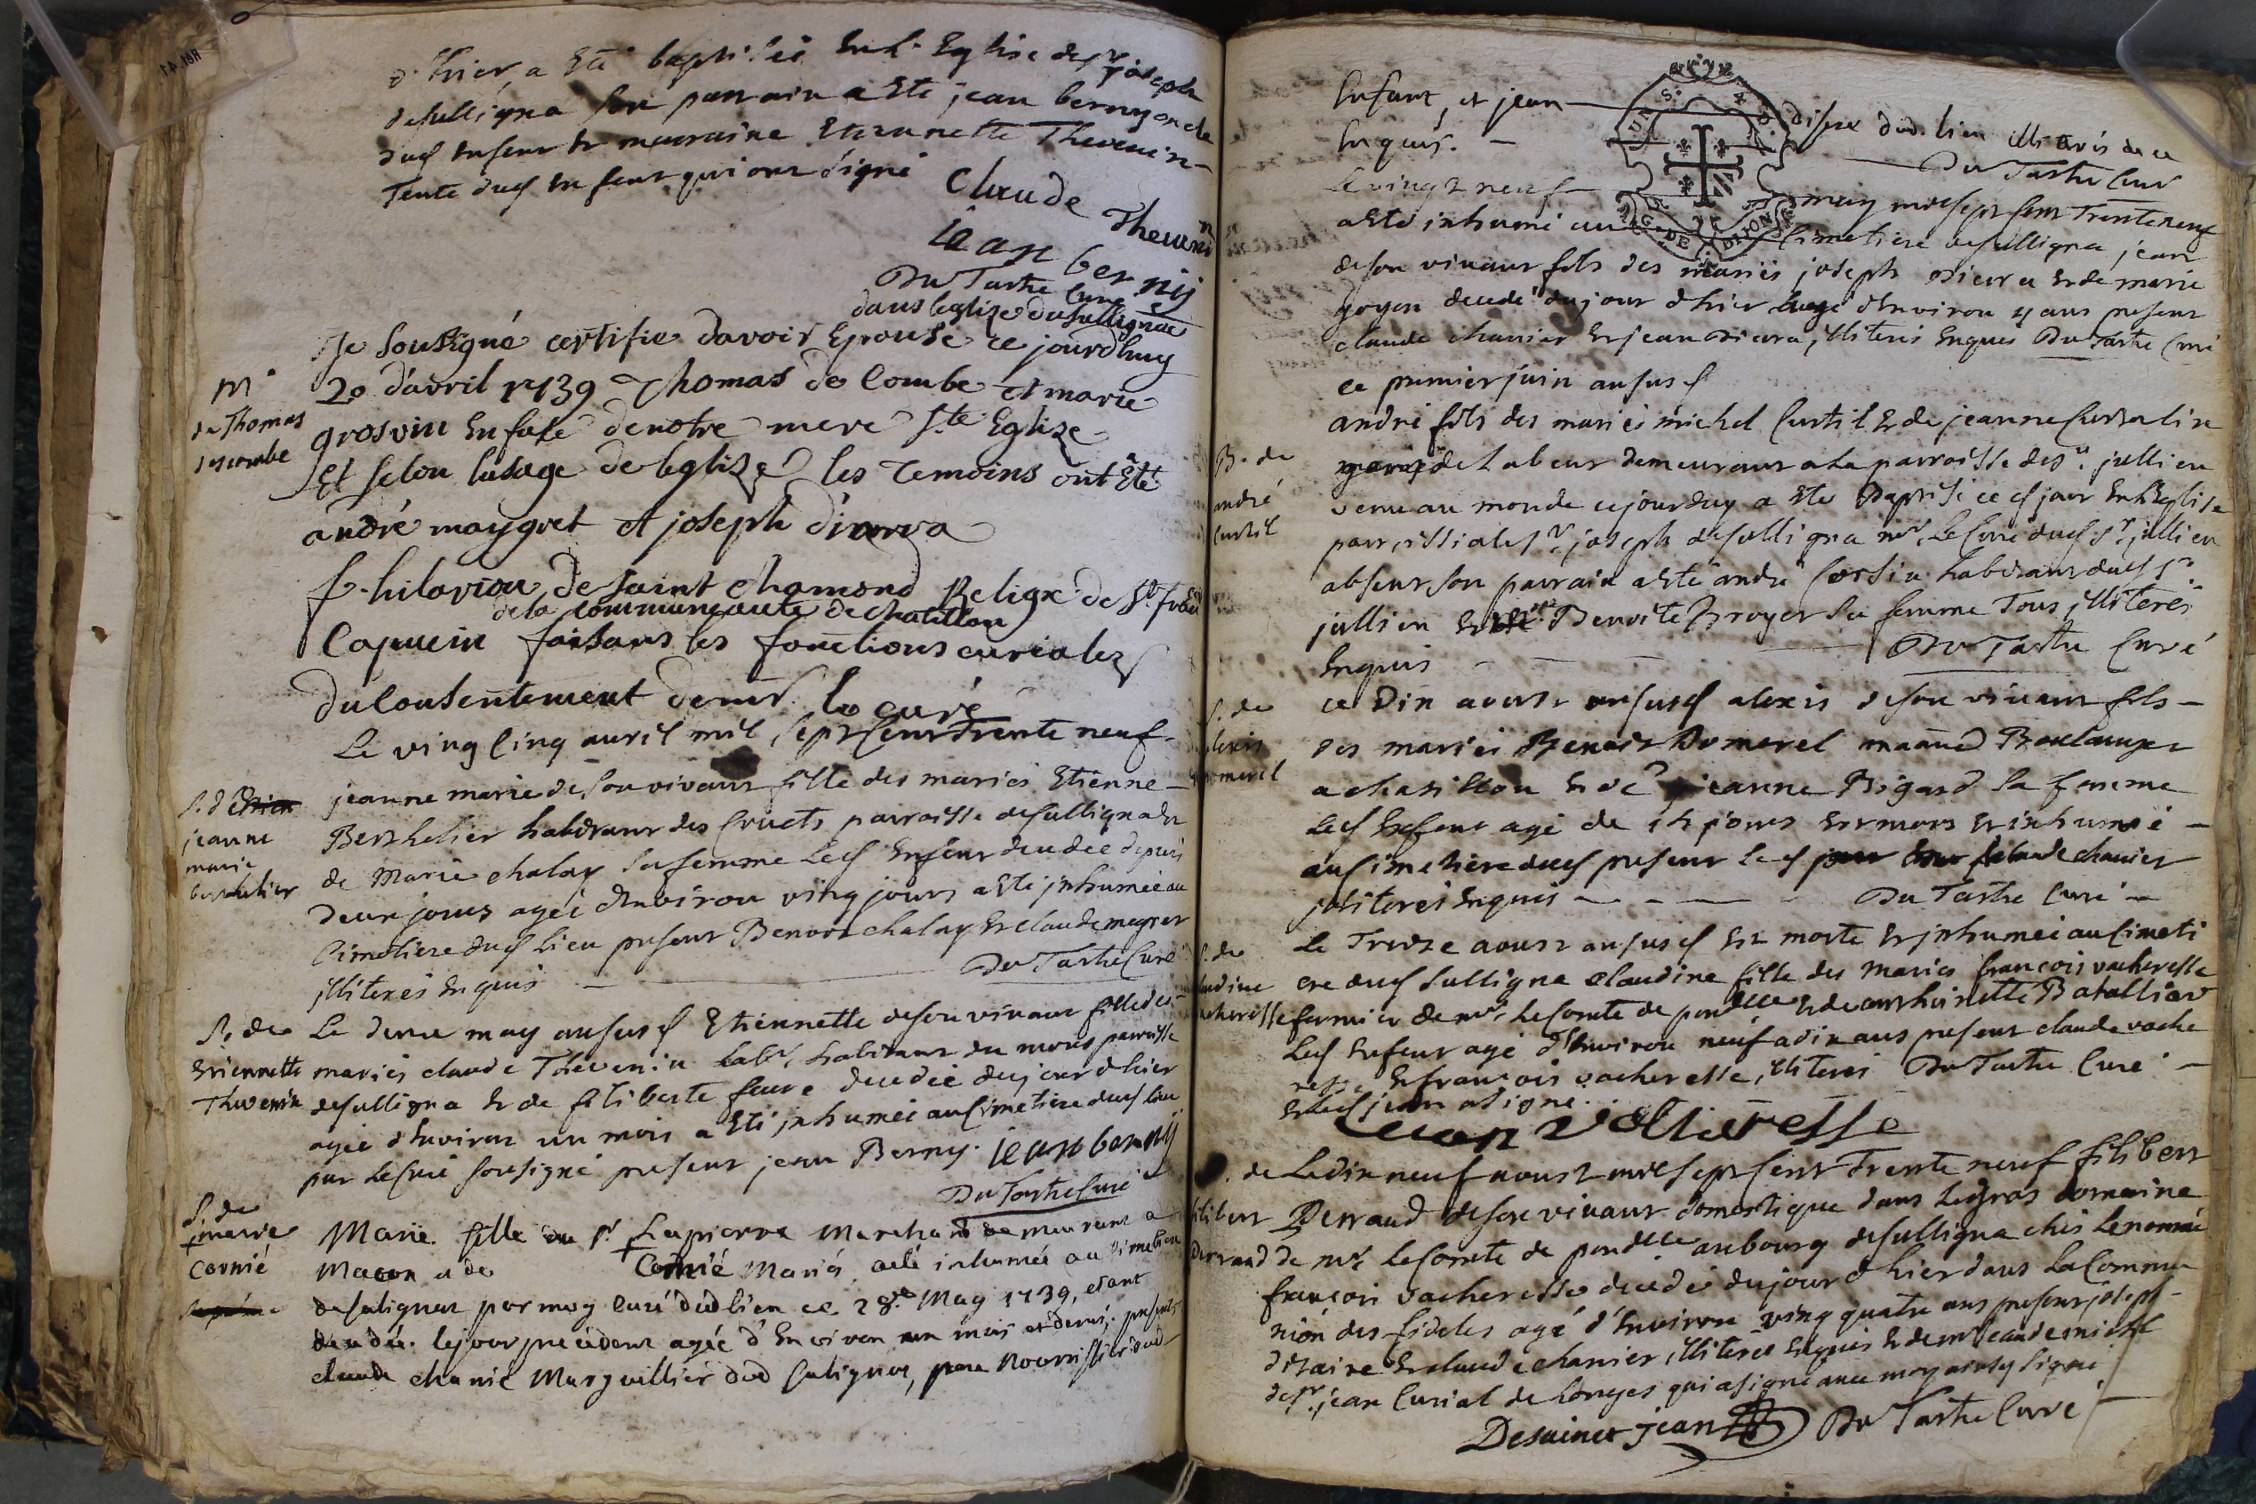 d'hier a Eté baptisée En L'Eglise de Sr joseph
desulligna son parrain a Eté jean berny oncle
dud Enfent Et marraine Etiennette Thevenin
Tente dud Enfent qui ont signé
Claude Thevenin
iean bernij
DuTartre Curé
dans leglize de Sullignac
Je Sousigné certifie davoir Epousé ce jourdhuy
M.
de Thomas
descombe
20 d'avril 1739 Thomas de Combe et marie
grosvin En face de notre mere Ste Eglize
Et selon lusage de leglize les Temoins ont Eté
andré maygret et joseph diurra
f. hilarion de Saint Chamond Religx de St. fran
de la communauté de chatillon
Capucin faisans les fonctions curiales
du Consentement de mr. le curé
Le ving Cinq auril mil sept Cent Trente neuf
S. d
jeanne
marie
berthelier
jeanne marie de son vivant fille des mariés Etienne
Berthelier habitant des Cruets parroisse desulligna Et
de Marie chalay sa femme Led Enfent decedée depuis
deux jours agéé d'Environ ving jours a Eté jnhumée au
Cimetiere dud Lieu present Benoit chalay Et claude maigret
jlliterés Enquis
DuTartre Curé
S. de
Etiennette
Thevenin
Le deux may ansusd Etiennette de son vivant fille des
mariés claude Thevenin labr. habitant du mons parroisse
desulligna Et de filiberte feure decedée dujour d'hier
agée d'Environ un mois a Eté jnhumée au Cimetiere dud lieu
par Le Curé sousigné present jean Berny. iean bernij
DuTartre Curé
S. de
marie
Cornié
Marie fille du Sr Lapierre Marchand demeurant a
Macon et de Cornié Mariés a été inhumée au cimetiere
de Sulignat par moy Curé dud lien ce 28e May 1739, etant
decedée le jour précédent agée d'Environ un mois et demi, presents
claude chanié Marguillier dud Sulignat, pere Nourrissier dud
Enfant, et jean disera dud. lieu illiterés de ce
Enquis.
DuTartre Curé
Le vingt neuf may mil sept Cent Trente neuf
a Eté inhumé au Cimetiere desulligna jean
de son vivant fils des mariés joseph Et de marie
goyon decedé dujour d'hier agé d'Environ 4 ans present
claude chanier Et jean jlliterés Enquis DuTartre Curé
ce premier juin ansusd
B. de
andré
Curtil
andré fils des mariés michel Curtil Et de jeanne
de Labeur demeurant a la parroisse de St. jullien
venu au monde cejourduy a Eté Baptisé ce d jour En L'Eglise
parroissiale Sr. joseph desulligna mr. Le Curé dud St. jullien
absent son parrain a Eté andré habitant dud St.
jullien Et Benoite Broyer sa femme Tous jlliterés
Enquis
DuTartre Curé
S. de
alexis
Domerel
ce Dix aoust ansusd alexis de son vivant fils
des mariés Benoit Domerel manand Boulanger
a chatillon Et de jeanne Bigand sa femme
Led Enfent agé de jours Est mort Et inhumé
au Cimetiere dud present claude chanier
jlliterés Enquis
DuTartre Curé
S. de
claudine
vacheresse
Le Treize aoust ansusd Est morte Et jnhumée au Cimeti
ere dud Sulligna claudine fille des mariés françois vacheresse
fermier de mr. Le Comte de pondelle Et de anthoinette Batallior
Led Enfent agé d'Environ neuf a dix ans present claude vache
resse Et françois vacheresse, jlliterés DuTartre Curé
Et led jean a signé.
Jean vacheresse
S. de
filibert
Perraud
Le dix neuf aoust mil sept Cent Trente neuf filibert
Perraud de son vivant domestique dans Le gros domaine
de mr. Le Comte de pondelle au bourg desulligna chés Le nommé
françois vacheresse decedé dujour d'hier dans La Commu
nion des fideles agé d'Environ ving quatre ans present joseph
Et claude chanier, jlliterés Enquis Et de mr
de Sr. jean Curial de Longes qui a signé avec moy aussy signé
Desainct jean DuTartre Curé